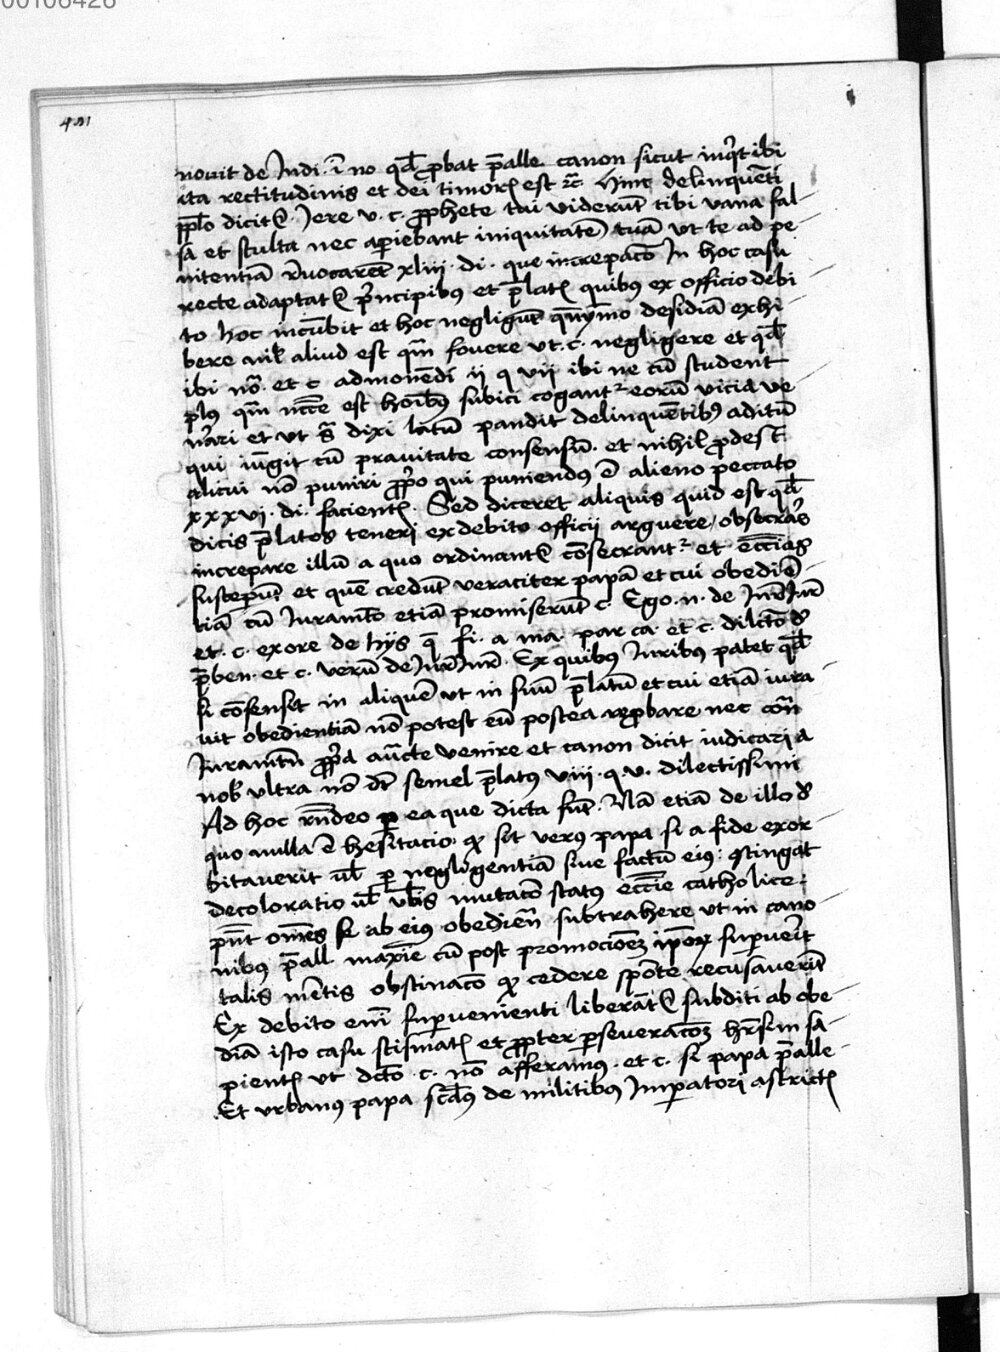 00106426
novit de Judi. i no qd̄ probat p̄alle. canon sicut inq̄t ibi
ita rectitudinis et dei timoris est rc̄. Hinc delinquēti
pplo dicitr Jere v. c. prophete tui viderunt tibi vana fal
sa et stulta nec apiebant iniquitatē tuā ut te ad pe
nitentiā rvocarēt xliij. di. que increpaco In hoc casu
recte adaptatr p̄ncipibus et p̄latis quibus ex officio debi
to hoc incūbit et hoc negligūt desidiā exhi
bere nil aliud est qm̄ fovere ut. c. negligere et qd̄
ibi no. et c admonēdi ij q vij ibi ne cū student
plus qm̄ ncc̄e est hoibus subici cogantr eorū vicia ve
nrari et ut s̄ dixi latū pandit delinquētibus aditū
qui iūgit cū pravitate consensū. et nihil prodest
alicui nō puniri prop̄o qui puniendus ē alieno peccato
xxxvj. di. facientis. Sed diceret aliquis quid est qd̄
dicis p̄latos teneri ex debito officij arguere, obsecrās
increpare illū a quo ordinantr cōsecrantr et ecc̄ias
susceperūt et quē credūt veraciter papā et cui obediē
tiā cū Juramēto etiā promiserūt c. Ego. n. de Jureiur
et. c. ex ore de hijs q̄ fi. a ma par ca et c. dilcto d
p̄ben. et c. verū de Jureiur. Ex quibus Juribus patet qd̄
si cōsensit in aliquē ut in suū p̄latū et cui etiā iura
vit obedientiā nō potest eū postea reprobare nec con̄
Juramtū prop̄a auct̄e venire et canon dicit iudicari a
nob ultra nō dt semel p̄latus viij. q v. dilectissimi
Ad hoc rn̄deo p ea que dicta sūt. Nā etiā de illo d
quo nulla ē hesitacio qr sit verus papa si a fide exor
bitaverit ul p negligentiā sive factū eius 9tingat
decoloratio ul urbis mutaco status ecc̄ie catholice.
pn̄t om̄es se ab eius obediēn subtrahere ut in cano
nibus p̄all maxīe cū post promocionē ipor supvenit
talis mētis obstinaco qr cedere spōte recusaverūt
Ex debito eni supvenienti liberātr subditi ab obe
diā isto casu scismatis et propter pseveracoz hrsim sa
pientis ut dcto. c. nō afferamus. et c. si papa p̄alle
Et urbanus papa scd̄us de militibus Imperatori astrictis